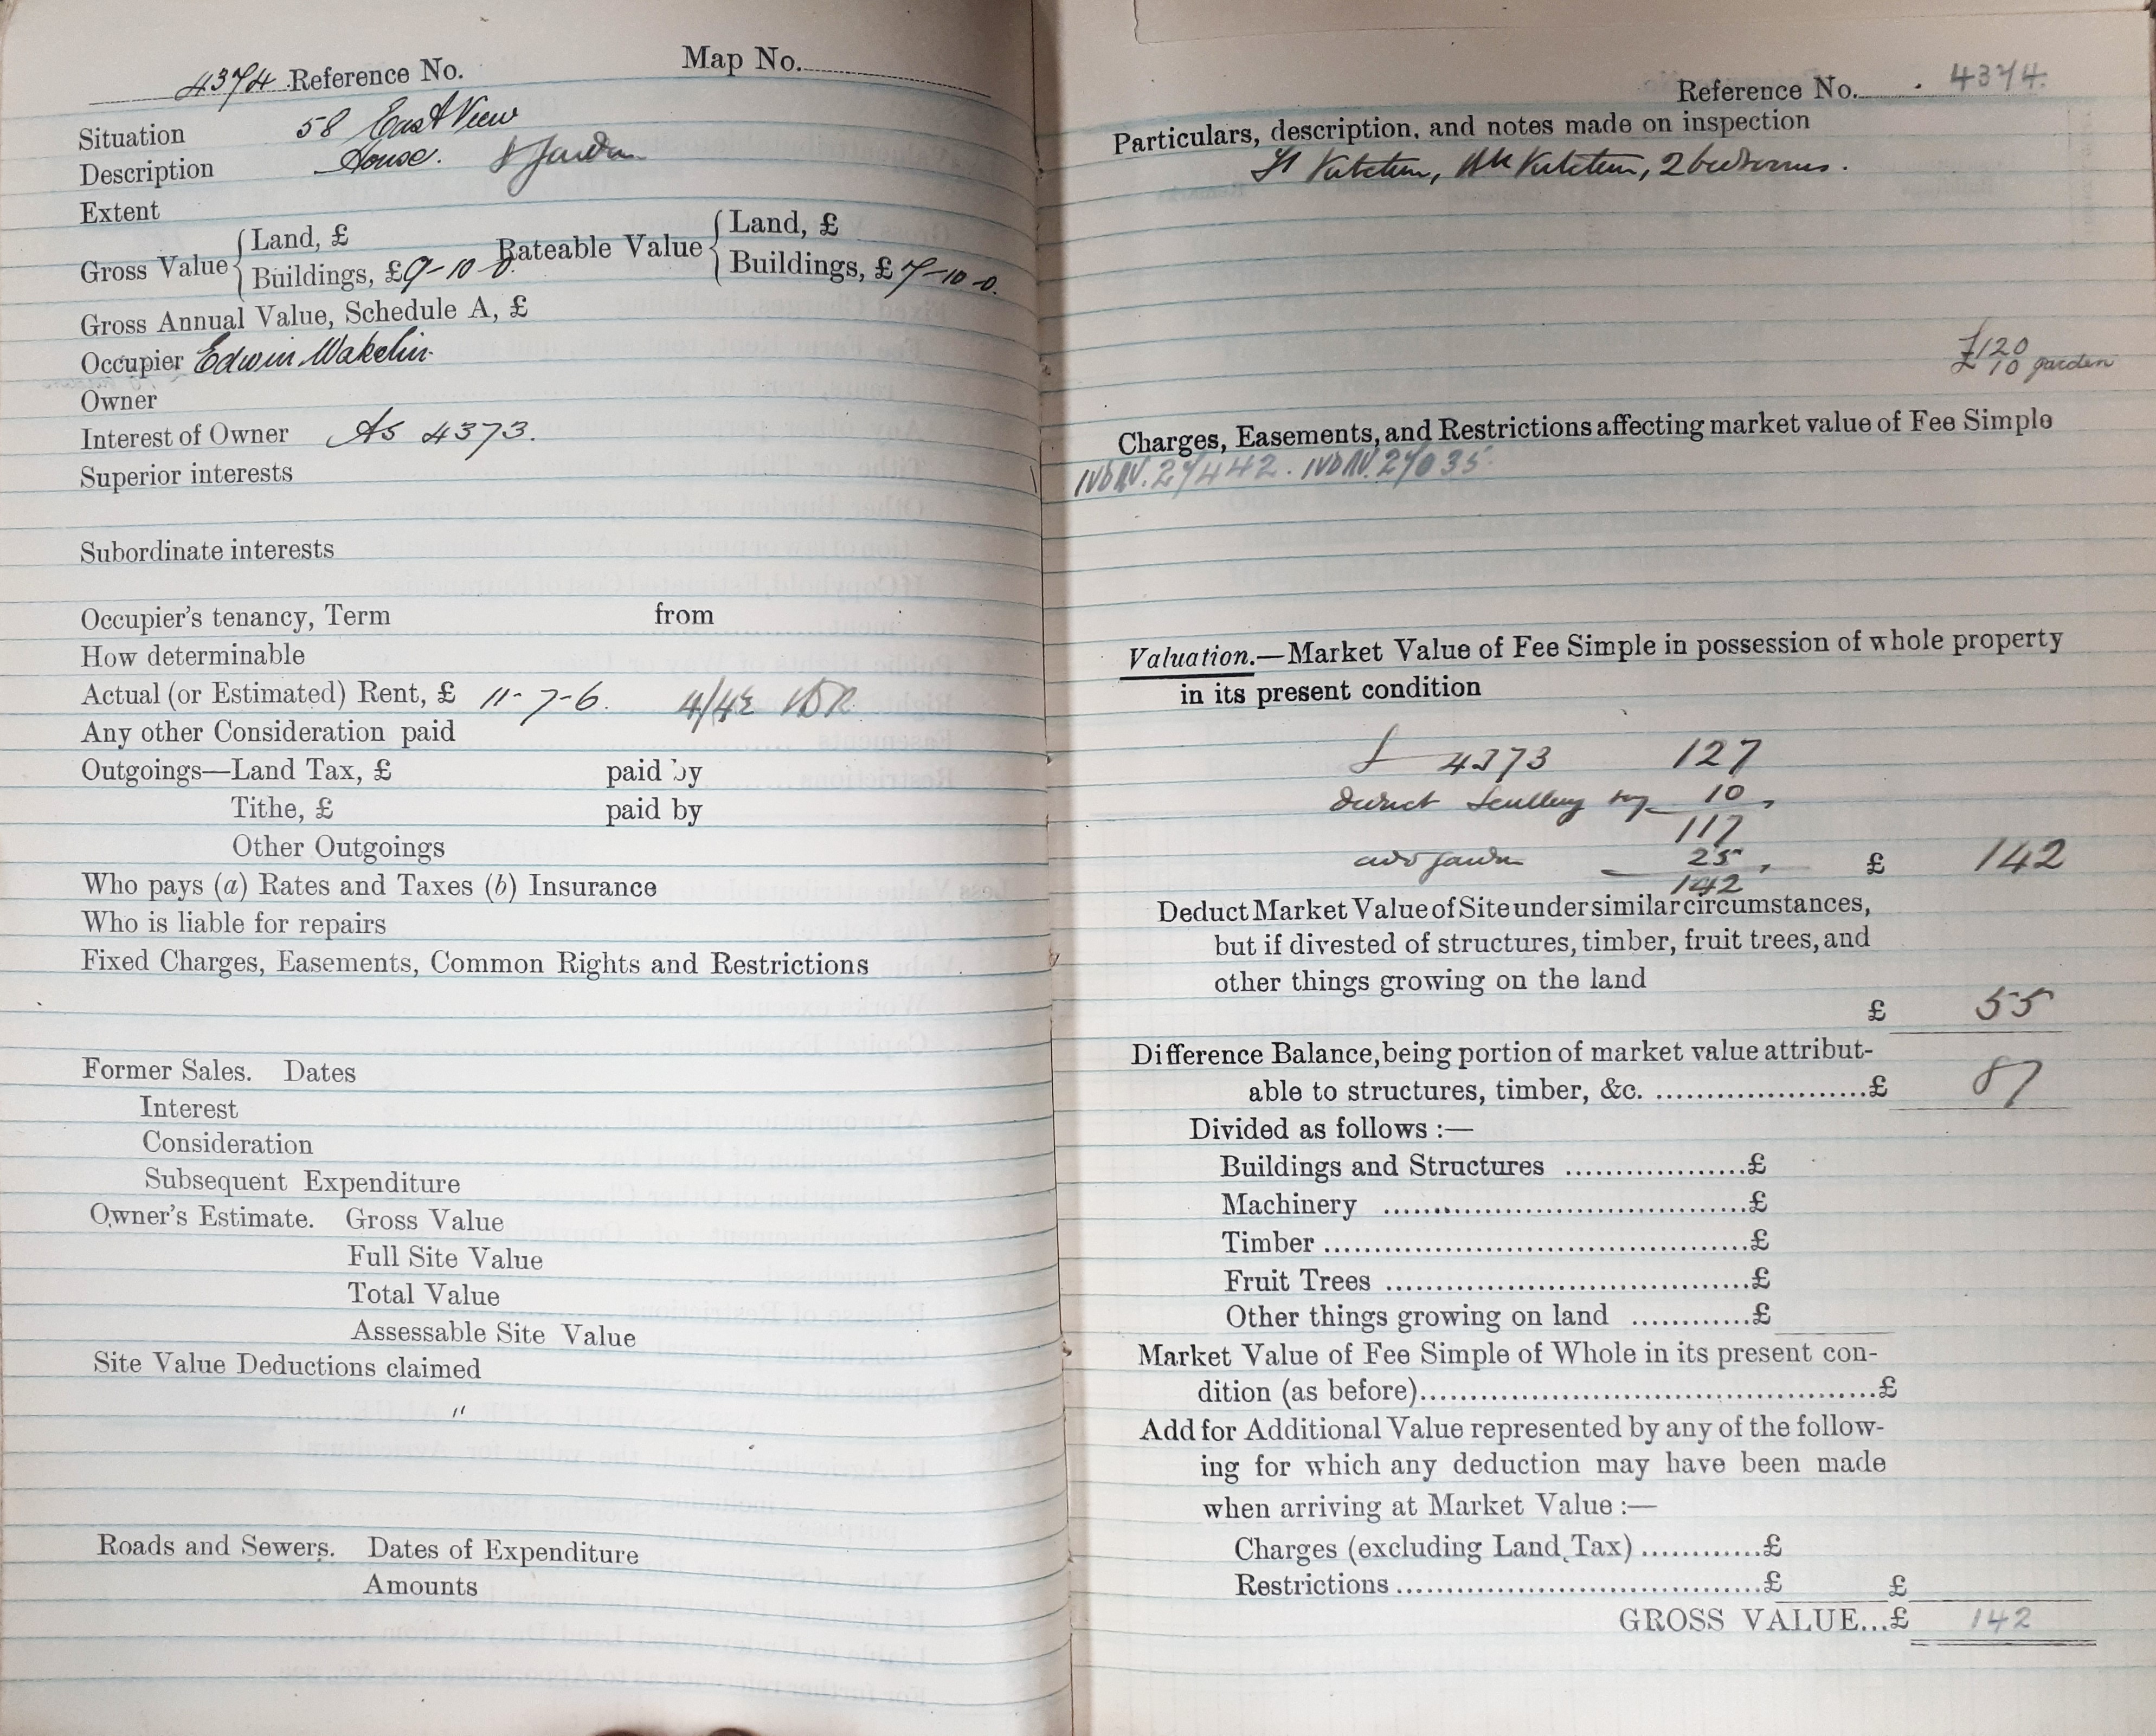 4374 Reference No. Map No.
Situation 58 East View
Description House. & Garden
Extent
Gross Value { Land, £
Buildings, £9-10-0. Rateable Value { Land, £
Buildings, £7-10-0.
Gross Annual Value, Schedule A, £
Occupier Edwin Wakelin
Owner
Interest of Owner As 4373.
Superior interests
Subordinate interests
Occupier's tenancy, Term from
How determinable
Actual (or Estimated) Rent, £ 11-7-6. 4/4½
Any other Consideration paid
Outgoings—Land Tax, £ paid by
Tithe, £ paid by
Other Outgoings
Who pays (a) Rates and Taxes (b) Insurance
Who is liable for repairs
Fixed Charges, Easements, Common Rights and Restrictions
Former Sales. Dates
Interest
Consideration
Subsequent Expenditure
Owner's Estimate. Gross Value
Full Site Value
Total Value
Assessable Site Value
Site Value Deductions claimed
"
Roads and Sewers. Dates of Expenditure
Amounts
Reference No. 4374.
Particulars, description, and notes made on inspection
Ft Kitchen, Bk Kitchen, 2 bedrooms.
£120
10 garden
Charges, Easements, and Restrictions affecting market value of Fee Simple
IVDRV.27442. IVDRV.27035
Valuation.—Market Value of Fee Simple in possession of whole property
in its present condition
£ 4373 127
deduct Scullery say 10
117
add garden 25
£ 142
142
Deduct Market Value of Site under similar circumstances,
but if divested of structures, timber, fruit trees, and
other things growing on the land
£ 55
Difference Balance, being portion of market value attribut-
able to structures, timber, &c. ....................£ 87
Divided as follows :—
Buildings and Structures ..................£
Machinery ....................................£
Timber..........................................£
Fruit Trees ....................................£
Other things growing on land ............£
Market Value of Fee Simple of Whole in its present con-
dition (as before)..............................................£
Add for Additional Value represented by any of the follow-
ing for which any deduction may have been made
when arriving at Market Value :—
Charges (excluding Land Tax) ............£
Restrictions....................................£ £
GROSS VALUE...£ 142